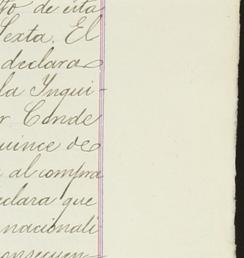 to de esta
Sexta. El
declara
la Inqui-
r Conde
quince de
al compra
clara que
nacionali
onsecuen-